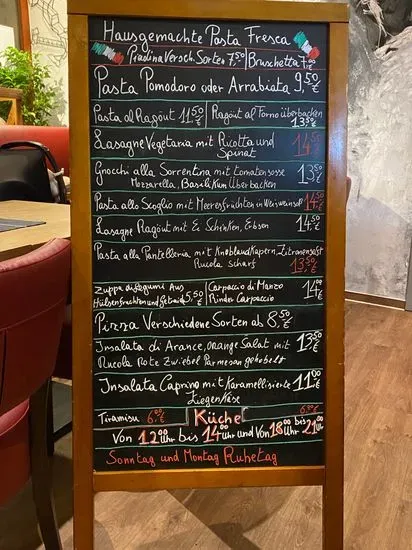 Hausgemachte Pasta Fresca
Piadina Versch. Sorten 7,50 | Bruschetta 7,00 €
Pasta Pomodoro oder Arrabiata 9,50 €
Pasta al Ragout 11,50 € | Ragout al Forno überbacken 13,50 €
Lasagne Vegetaria mit Ricotta und Spinat 14,50 €
Gnocchi alla Sorrentina mit tomatensosse 13,50 €
Mozzarella, Basilikum Überbacken
Pasta allo Scoglio mit Meeresfrüchten in Weisweinsoß 14,50 €
Lasagne Ragout mit E Schinken, Erbsen 14,50 €
Pasta alla Pantelleria mit Knoblauch Kapern, Zitronensaft
Rucola scharf 13,50 €
Zuppa di Legumi Aus | Carpaccio di Manzo 14,00 €
Hülsenfrüchten und Getreide 5,50 € | Rinder Carpaccio
Pizza Verschiedene Sorten ab 8,50 €
Insalata di Arance, orange Salat mit 13,50 €
Rucola Rote Zwiebel Parmesan gehobelt
Insalata Caprino mit Karamellisierte 11,00 €
Ziegenkäse
Tiramisu 6,00 € Küche 6,00 €
Von 12:00 Uhr bis 14:00 Uhr und Von 18:00 Uhr bis 21:00 Uhr
Sonntag und Montag Ruhetag